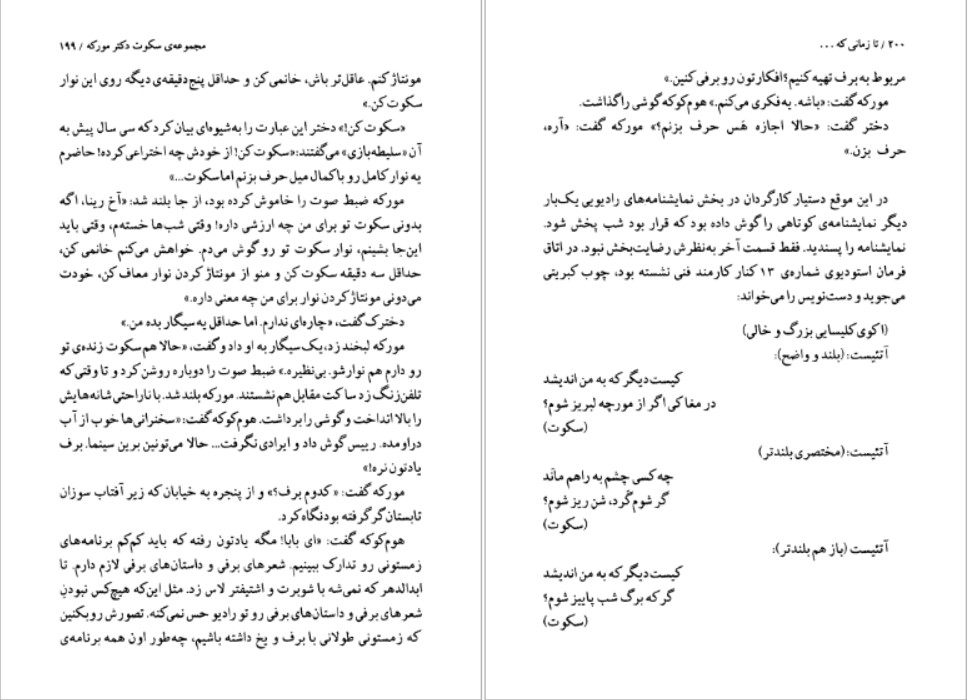 مجموعه‌ی سکوت دکتر مورکه / ۱۹۹
مونتاژ کنم. عاقل‌تر باش، خانمی کن و حداقل پنج‌دقیقه‌ی دیگه روی این نوار
سکوت کن.»
«سکوت کن!» دختر این عبارت را به‌شیوه‌ای بیان کرد که سی سال پیش به
آن «سلیطه‌بازی» می‌گفتند: «سکوت کن! از خودش چه اختراعی کرده! حاضرم
یه نوار کامل رو با کمال میل حرف بزنم اما سکوت...»
مورکه ضبط صوت را خاموش کرده بود، از جا بلند شد: «آخ رینا، اگه
بدونی سکوت تو برای من چه ارزشی داره! وقتی شب‌ها خسته‌م، وقتی باید
این‌جا بشینم، نوار سکوت تو رو گوش می‌دم. خواهش می‌کنم خانمی کن،
حداقل سه دقیقه سکوت کن و منو از مونتاژ کردن نوار معاف کن، خودت
می‌دونی مونتاژ کردن نوار برای من چه معنی داره.»
دخترک گفت، «چاره‌ای ندارم. اما حداقل یه سیگار بده من.»
مورکه لبخند زد، یک سیگار به او داد و گفت، «حالا هم سکوت زنده‌ی تو
رو دارم هم نوارشو. بی‌نظیره.» ضبط صوت را دوباره روشن کرد و تا وقتی که
تلفن زنگ زد ساکت مقابل هم نشستند. مورکه بلند شد. با ناراحتی شانه‌هایش
را بالا انداخت و گوشی را برداشت. هوم‌کوکه گفت: «سخنرانی‌ها خوب از آب
دراومده. رییس گوش داد و ایرادی نگرفت... حالا می‌تونین برین سینما. برف
یادتون نره!»
مورکه گفت: «کدوم برف؟» و از پنجره به خیابان که زیر آفتاب سوزان
تابستان گر گرفته بود نگاه کرد.
هوم‌کوکه گفت: «ای بابا! مگه یادتون رفته که باید کم‌کم برنامه‌های
زمستونی رو تدارک ببینیم. شعرهای برفی و داستان‌های برفی لازم دارم. تا
ابدالدهر که نمی‌شه با شوبرت و اشتیفتر لاس زد. مثل این‌که هیچ‌کس نبودنِ
شعرهای برفی و داستان‌های برفی رو تو رادیو حس نمی‌کنه. تصورش رو بکنین
که زمستونی طولانی با برف و یخ داشته باشیم، چه‌طور اون همه برنامه‌ی
۲۰۰ / تا زمانی که ...
مربوط به برف تهیه کنیم؟ افکارتون رو برفی کنین.»
مورکه گفت: «باشه. یه فکری می‌کنم.» هوم‌کوکه گوشی را گذاشت.
دختر گفت: «حالا اجازه هَس حرف بزنم؟» مورکه گفت: «آره،
حرف بزن.»
در این موقع دستیار کارگردان در بخش نمایشنامه‌های رادیویی یک‌بار
دیگر نمایشنامه‌ی کوتاهی را گوش داده بود که قرار بود شب پخش شود.
نمایشنامه را پسندید. فقط قسمت آخر به‌نظرش رضایت‌بخش نبود. در اتاق
فرمان استودیوی شماره‌ی ۱۳ کنار کارمند فنی نشسته بود، چوب کبریتی
می‌جوید و دست‌نویس را می‌خواند:
(اکوی کلیسایی بزرگ و خالی)
آتئیست: (بلند و واضح):
کیست دیگر که به من اندیشد
در مغاکی اگر از مورچه لبریز شوم؟
(سکوت)
آتئیست: (مختصری بلندتر)
چه کسی چشم به راهم مانَد
گر شوم گَرد، شن ریز شوم؟
(سکوت)
آتئیست (باز هم بلندتر):
کیست دیگر که به من اندیشد
گر که برگ شب پاییز شوم؟
(سکوت)